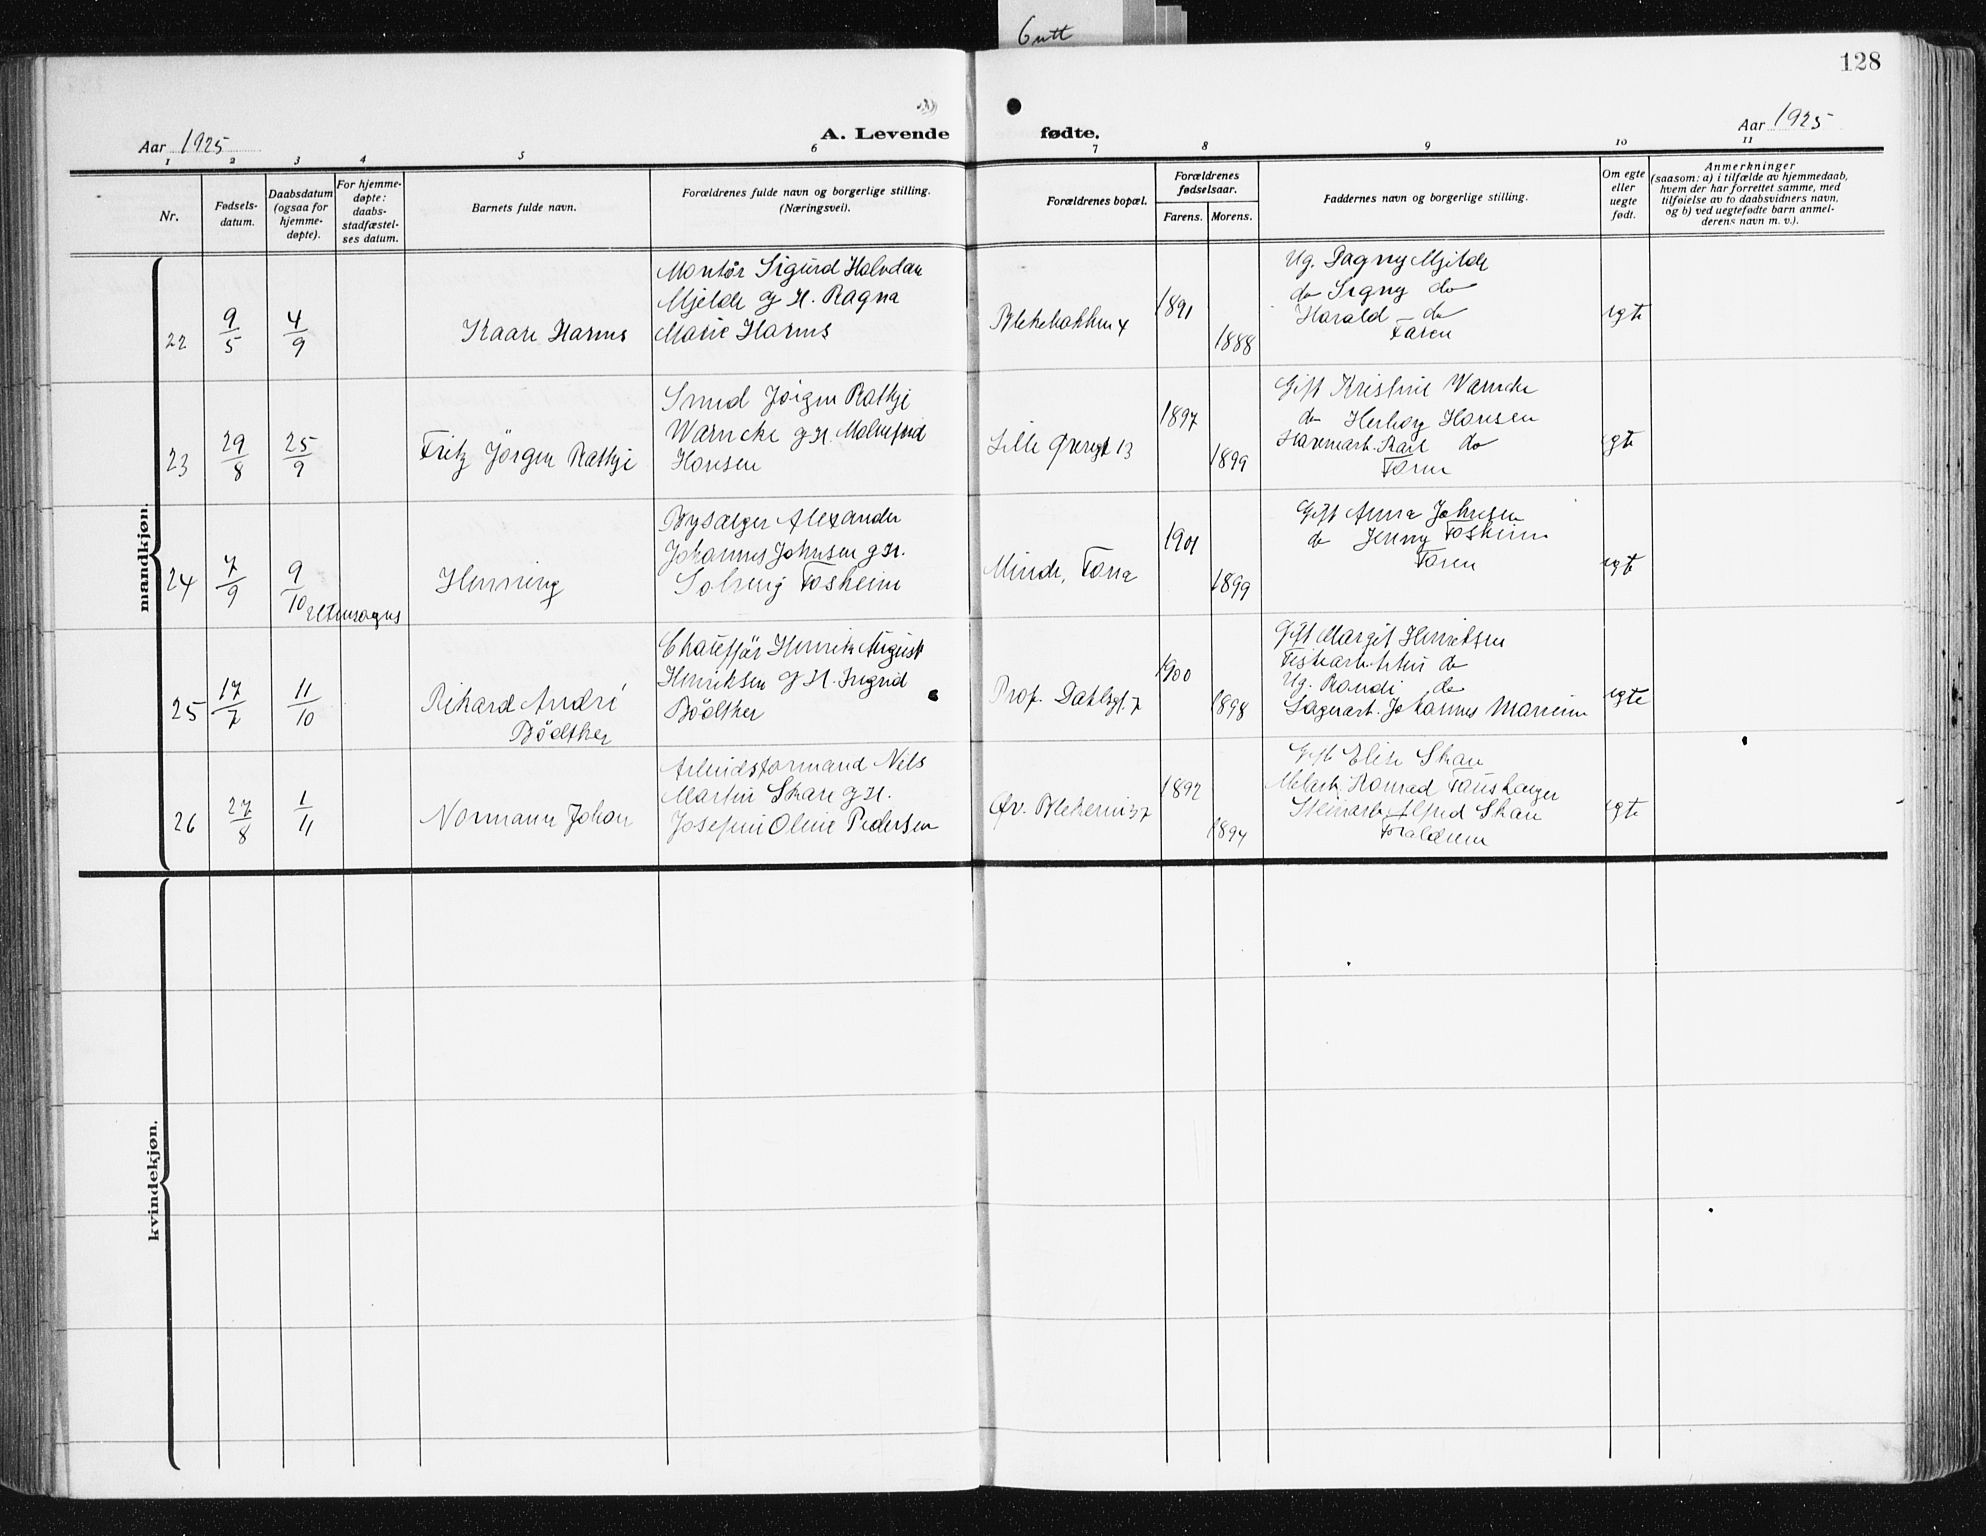 Gutt
128
Aar 1925
A. Levende fødte.
Aar 1925
1 2 3 4 5 6 7 8 9 10 11
Nr.
Fødsels-
datum.
Daabsdatum
(ogsaa for
hjemme-
døpte).
For hjemme-
døpte:
daabs-
stadfæstel-
ses datum.
Barnets fulde navn.
Forældrenes fulde navn og borgerlige stilling.
(Næringsvei).
Forældrenes bopæl.
Forældrenes
fødselsaar.
Farens. Morens.
Faddernes navn og borgerlige stilling.
Om egte
eller
uegte
født.
Anmerkninger
(saasom: a) i tilfælde av hjemmedaab,
hvem der har forrettet samme, med
tilføielse av to daabsvidners navn,
og b) ved uegtefødte barn anmel-
derens navn m. v.).
mandkjøn.
22
9/5
4/9
Kaare Harms
Montör Sigurd Halvdan
Mjelde g H. Ragna
Marie Harms
Blekebakken 4
1891
1888
Ug. Dagny Mjelde
do Signy do
Harald do
Faren
egte
23
29/8
25/9
Fritz Jörgen Rathje
Smed Jörgen Rathje
Warncke g H. Malmfrid
Hansen
Lille Øvregt 13
1897
1899
Gift Kristine Warncke
do Herborg Hansen
Havnearb. Karl do
Faren
egte
24
7/9
9/10
Henning
Bysælger Alexander
Johannes Johnsen g H.
Solveig Fosheim
Minde, Fana
1901
1899
Gift Anna Johnsen
do Jenny Fosheim
Faren
egte
25
17/7
11/10
Rikard André
Bödtker
Chaufför Henrik August
Henriksen g H. Ingrid
Bödtker
Prof. Dahlsgt. 7
1900
1898
Gift Margit Henriksen
Fiskearb. do
Ug. Randi do
Lagerarb. Johannes
egte
26
27/8
1/11
Normann Johan
Arbeidsformand Nils
Martin Skare g H.
Josefine Oline Pedersen
Øv. Blekevei 37
1892
1894
Gift Elise Skare
Konrad
Stenarb. Alfred Skare
Forældrene
egte
kvindekjøn.